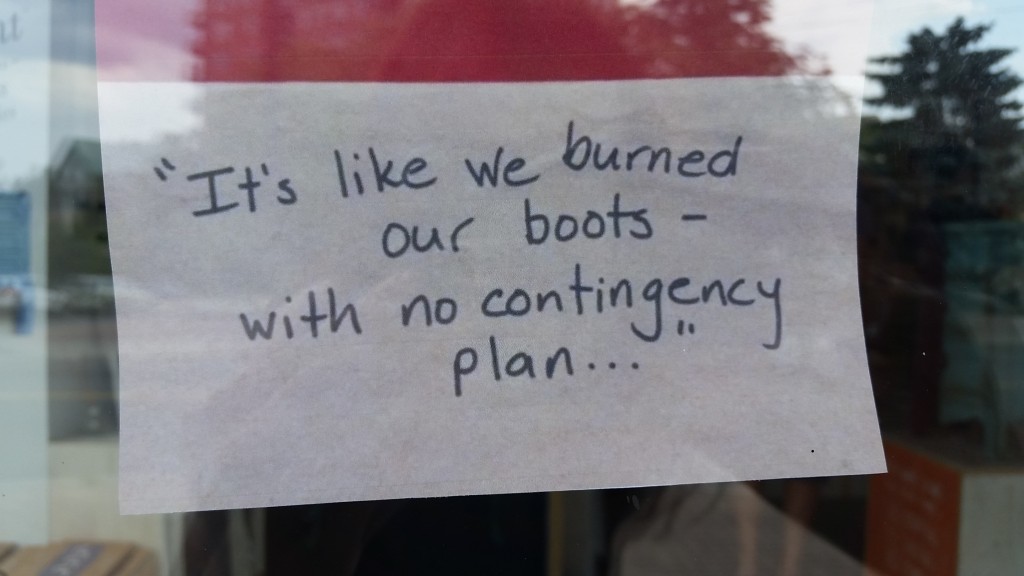 "It's like we burned
our boots -
with no contingency
plan..."